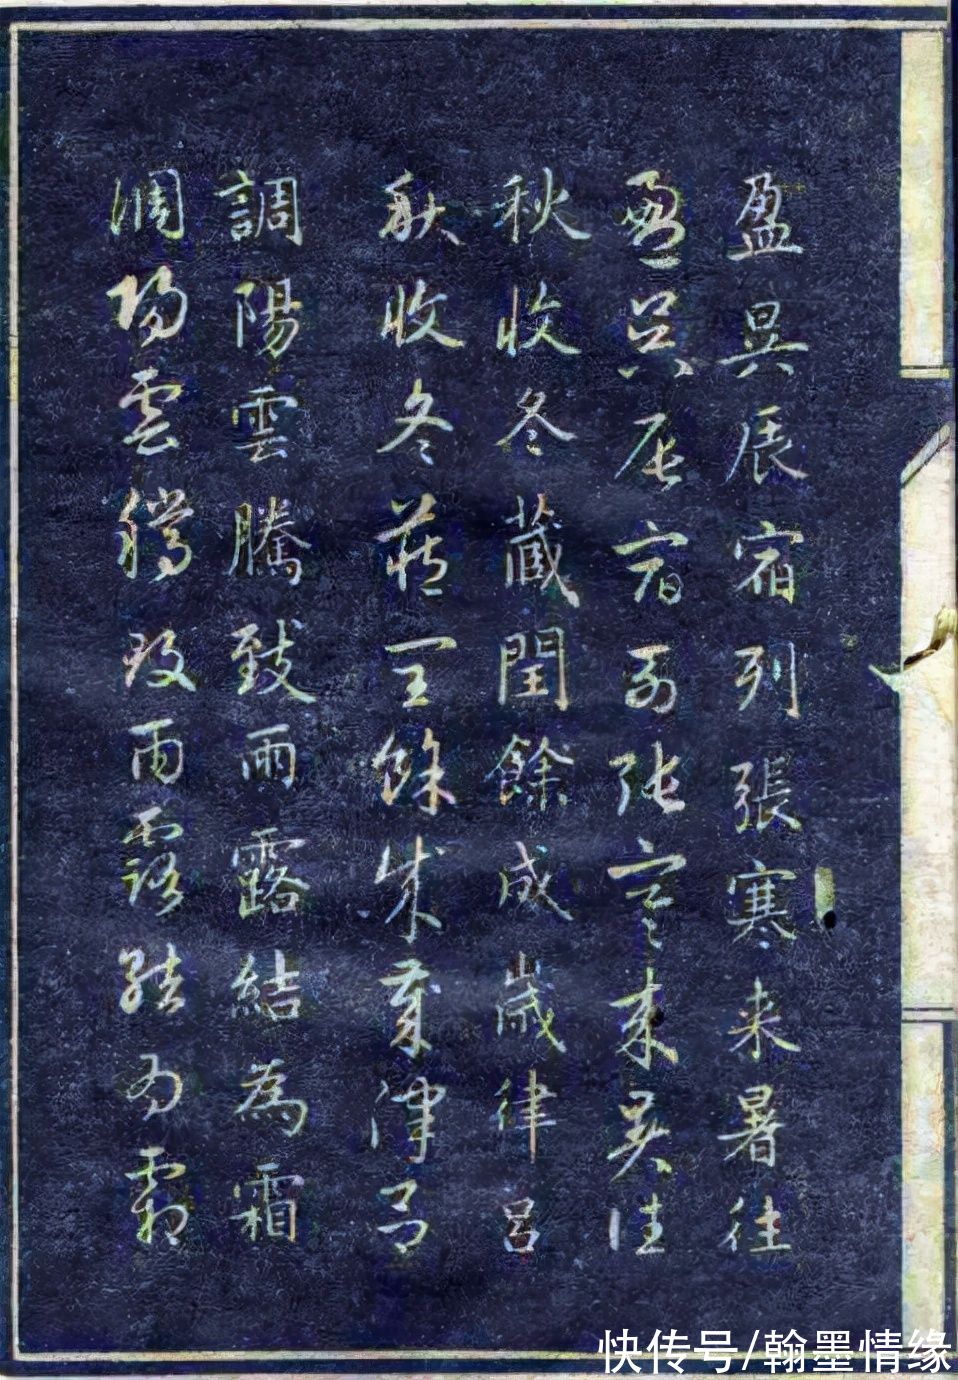 盈昃辰宿列張寒来暑往
盈昃辰宿列張寒来暑往
秋收冬蔵閏餘成歲律呂
秋收冬蔵閏餘成歲律呂
調陽雲騰致雨露結為霜
調陽雲騰致雨露結為霜
快传号/翰墨情缘